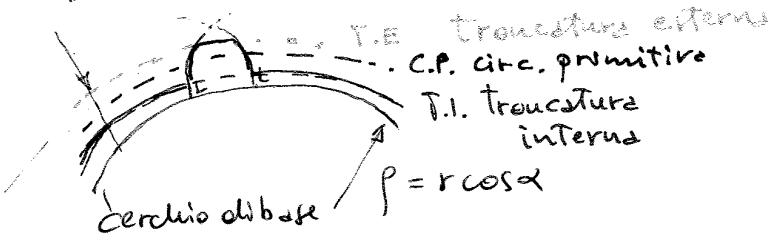 T.E troncatura esterna
C.P. circ. primitiva
T.I. troncatura
interna
ρ = r cosα
cerchio di base